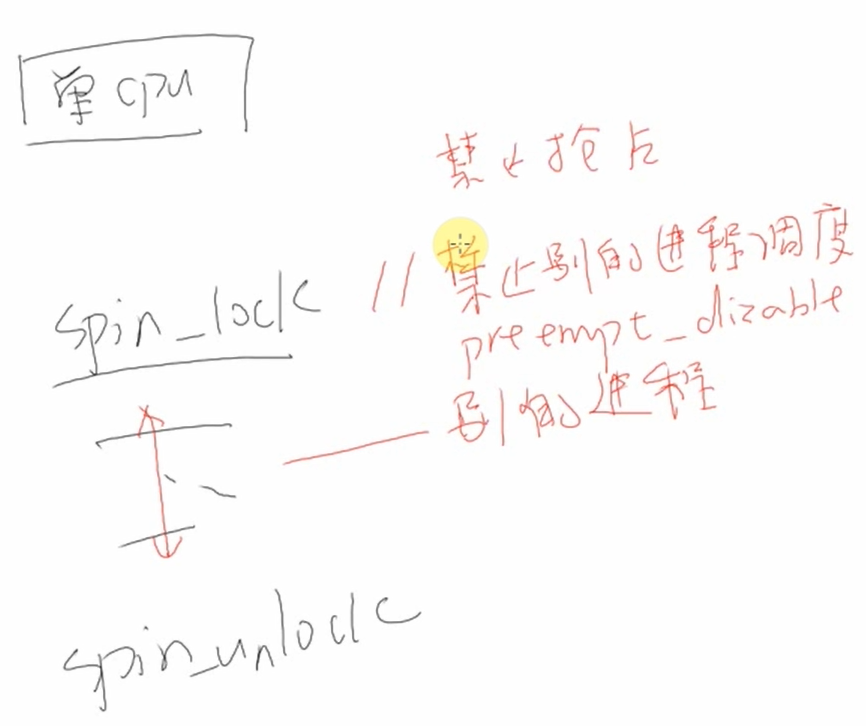 单cpu
禁止抢占
spin_lock // 禁止别的进程调度
preempt_dizable
别的进程
spin_unlock